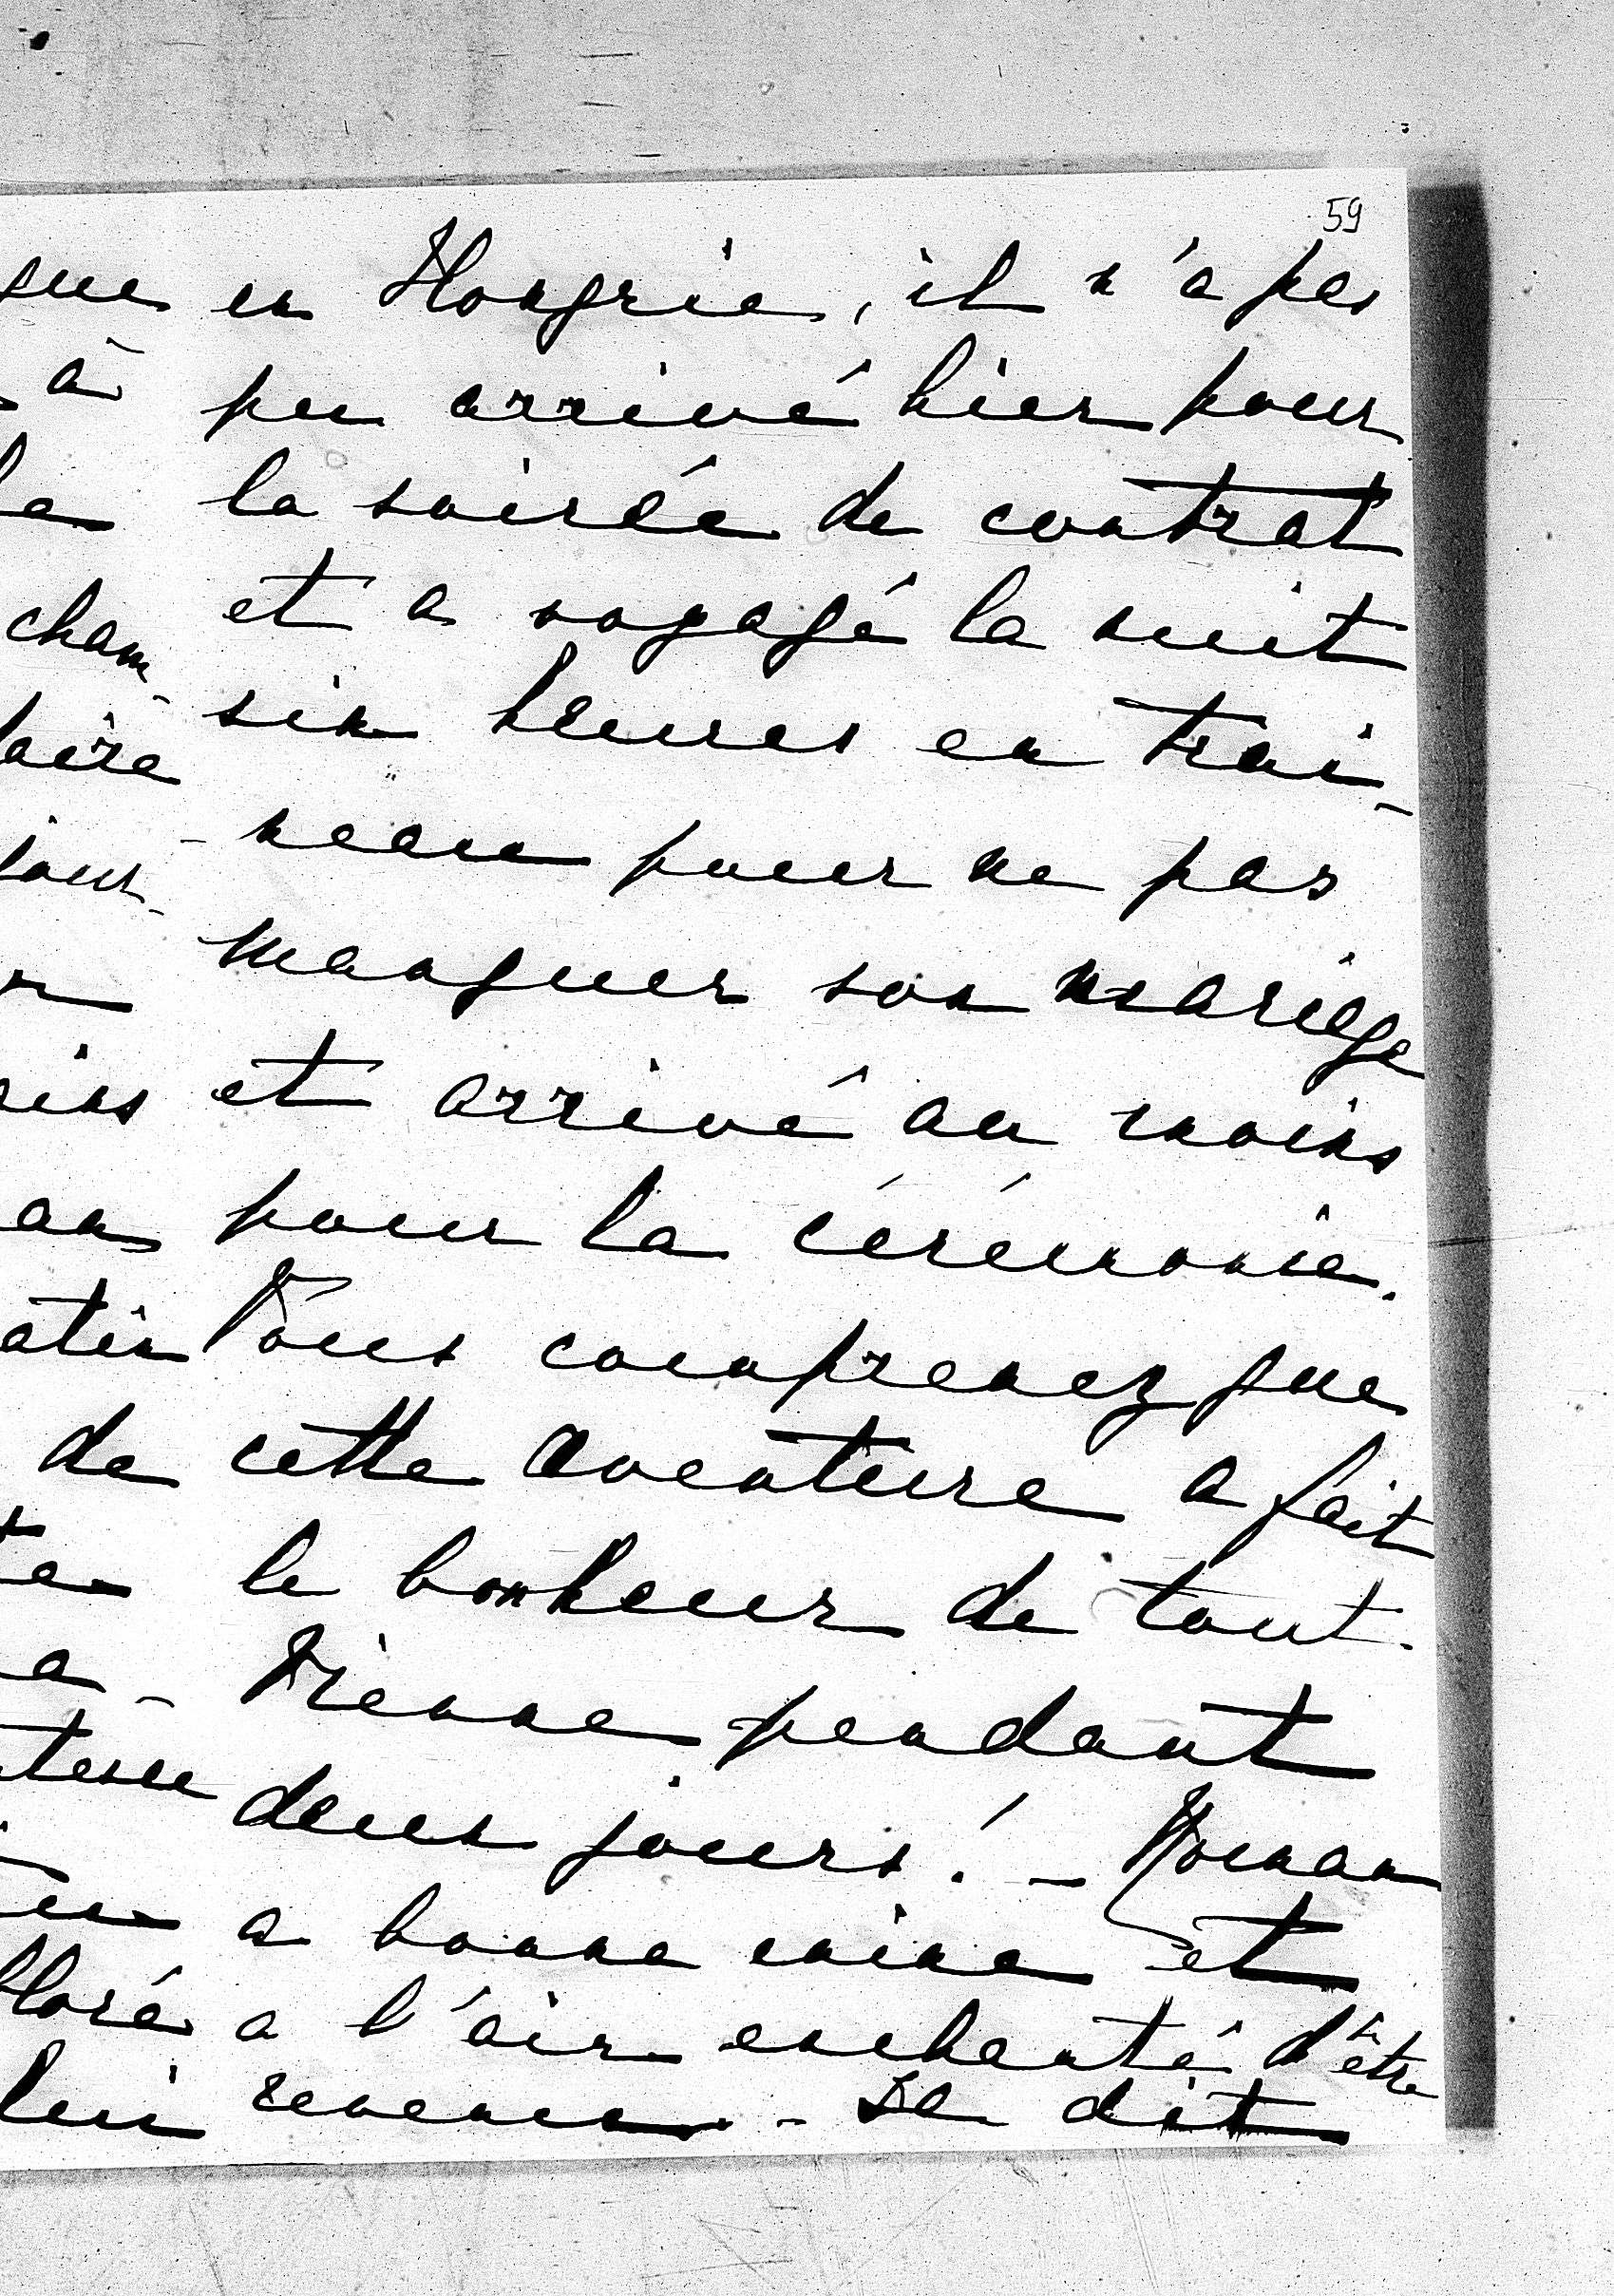 59
en Hongrie, il n'a pas
pu arrivé hier pour
la soirée de contrat
et a voyagé la nuit
six heures en trai-
-neau pour ne pas
manquer son mariage
et arrivé au moins
pour la cérémonie.
Vous comprenez que
cette aventure a fait
le bonheur de tout
Vienne pendant
deux jours! -
a bonne mine et
a l'air enchanté d'être
revenu. - Il dit
que
à
la
cham-
faire
jour-
oins
an
atin
de
a -
lui